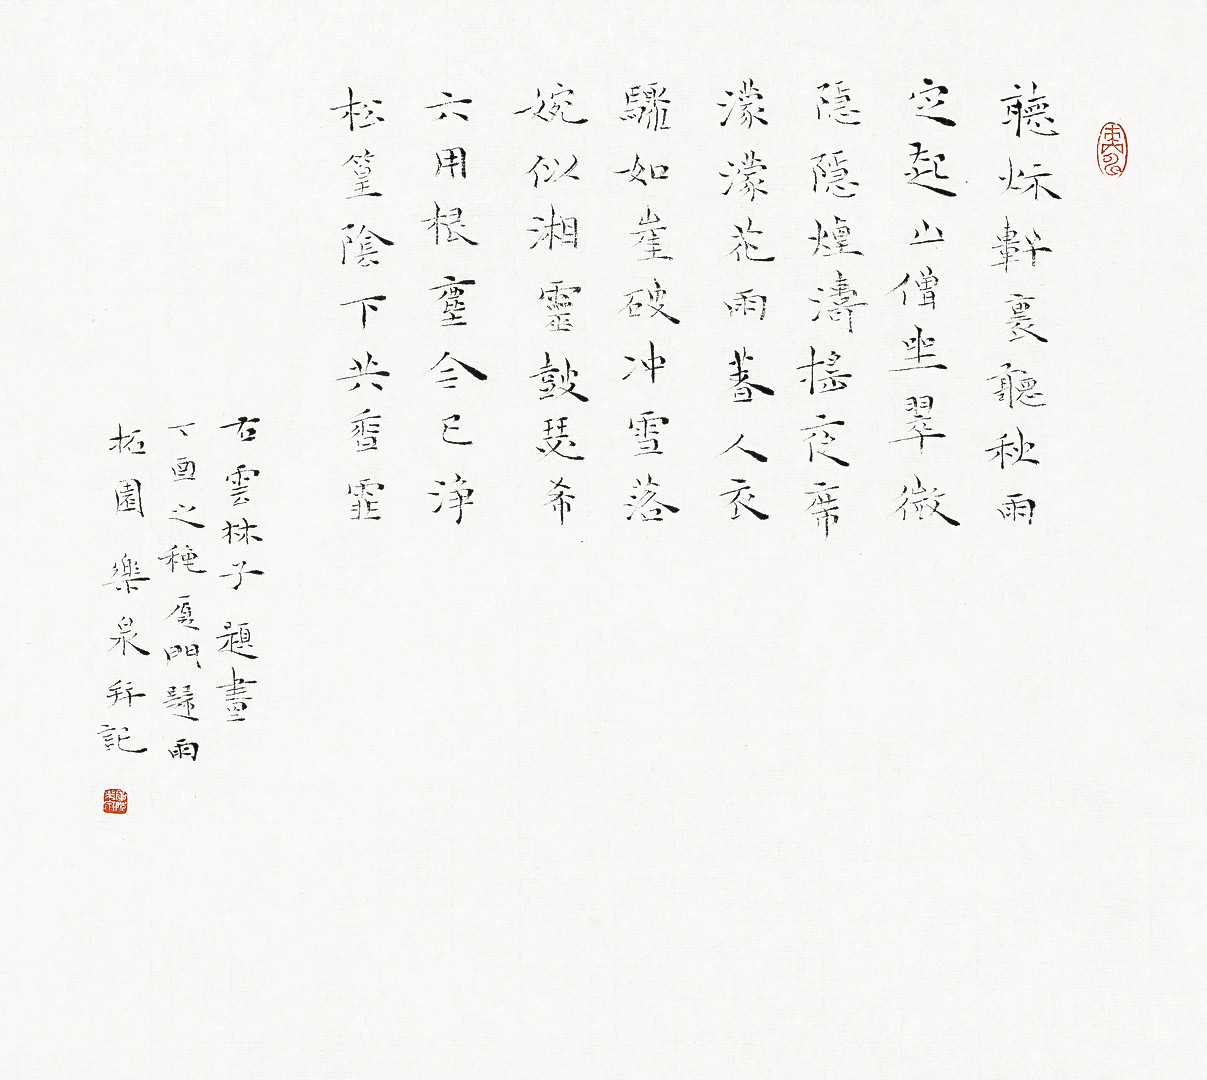 聽秌軒裏聽秋雨
定起山僧坐翠微
隱隱煙濤搖夜席
濛濛花雨著人衣
驟如崖破冲雪落
婉似湘靈鼓瑟希
六用根塵今已淨
松篁陰下共香霏
右雲林子題畫
丁酉之穐厦門雨
拓園樂泉并記